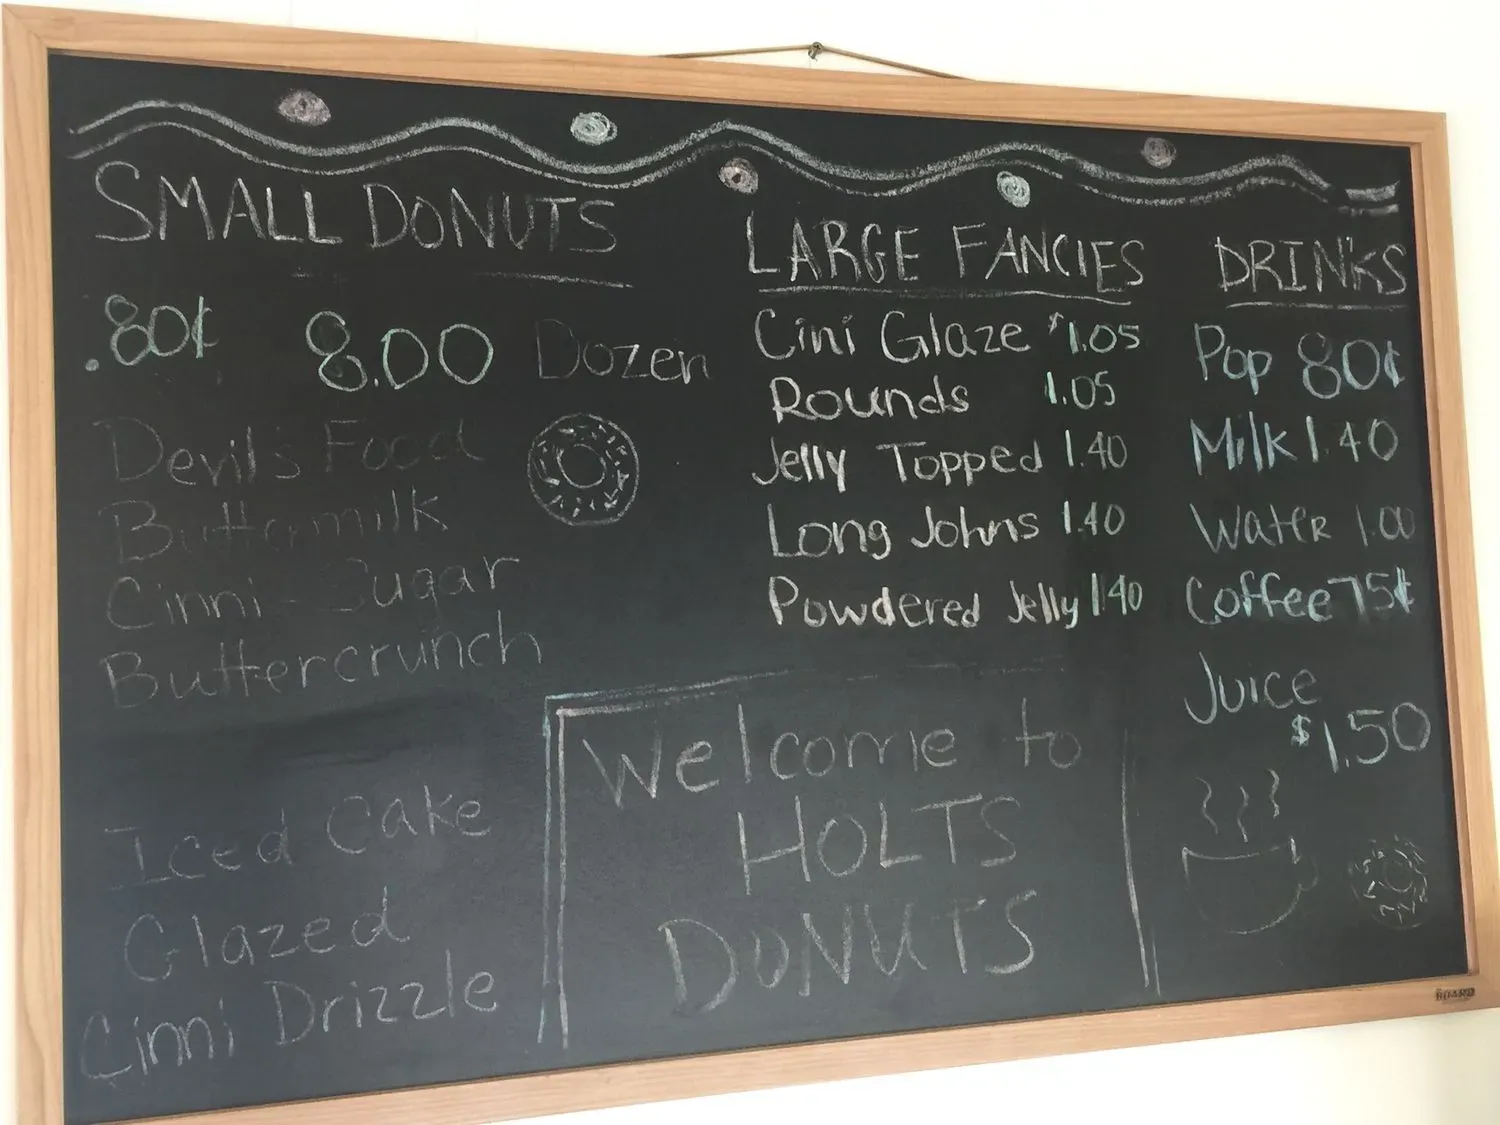 SMALL DONUTS
.80¢ 8.00 Dozen
Devil's Food
Buttermilk
Cinni-Sugar
Buttercrunch
Iced Cake
Glazed
Cinni Drizzle
LARGE FANCIES
Cini Glaze $1.05
Rounds 1.05
Jelly Topped 1.40
Long Johns 1.40
Powdered Jelly 1.40
Welcome to
HOLTS
DONUTS
DRINKS
Pop 80¢
Milk 1.40
Water 1.00
Coffee 75¢
Juice
$1.50
BOARD